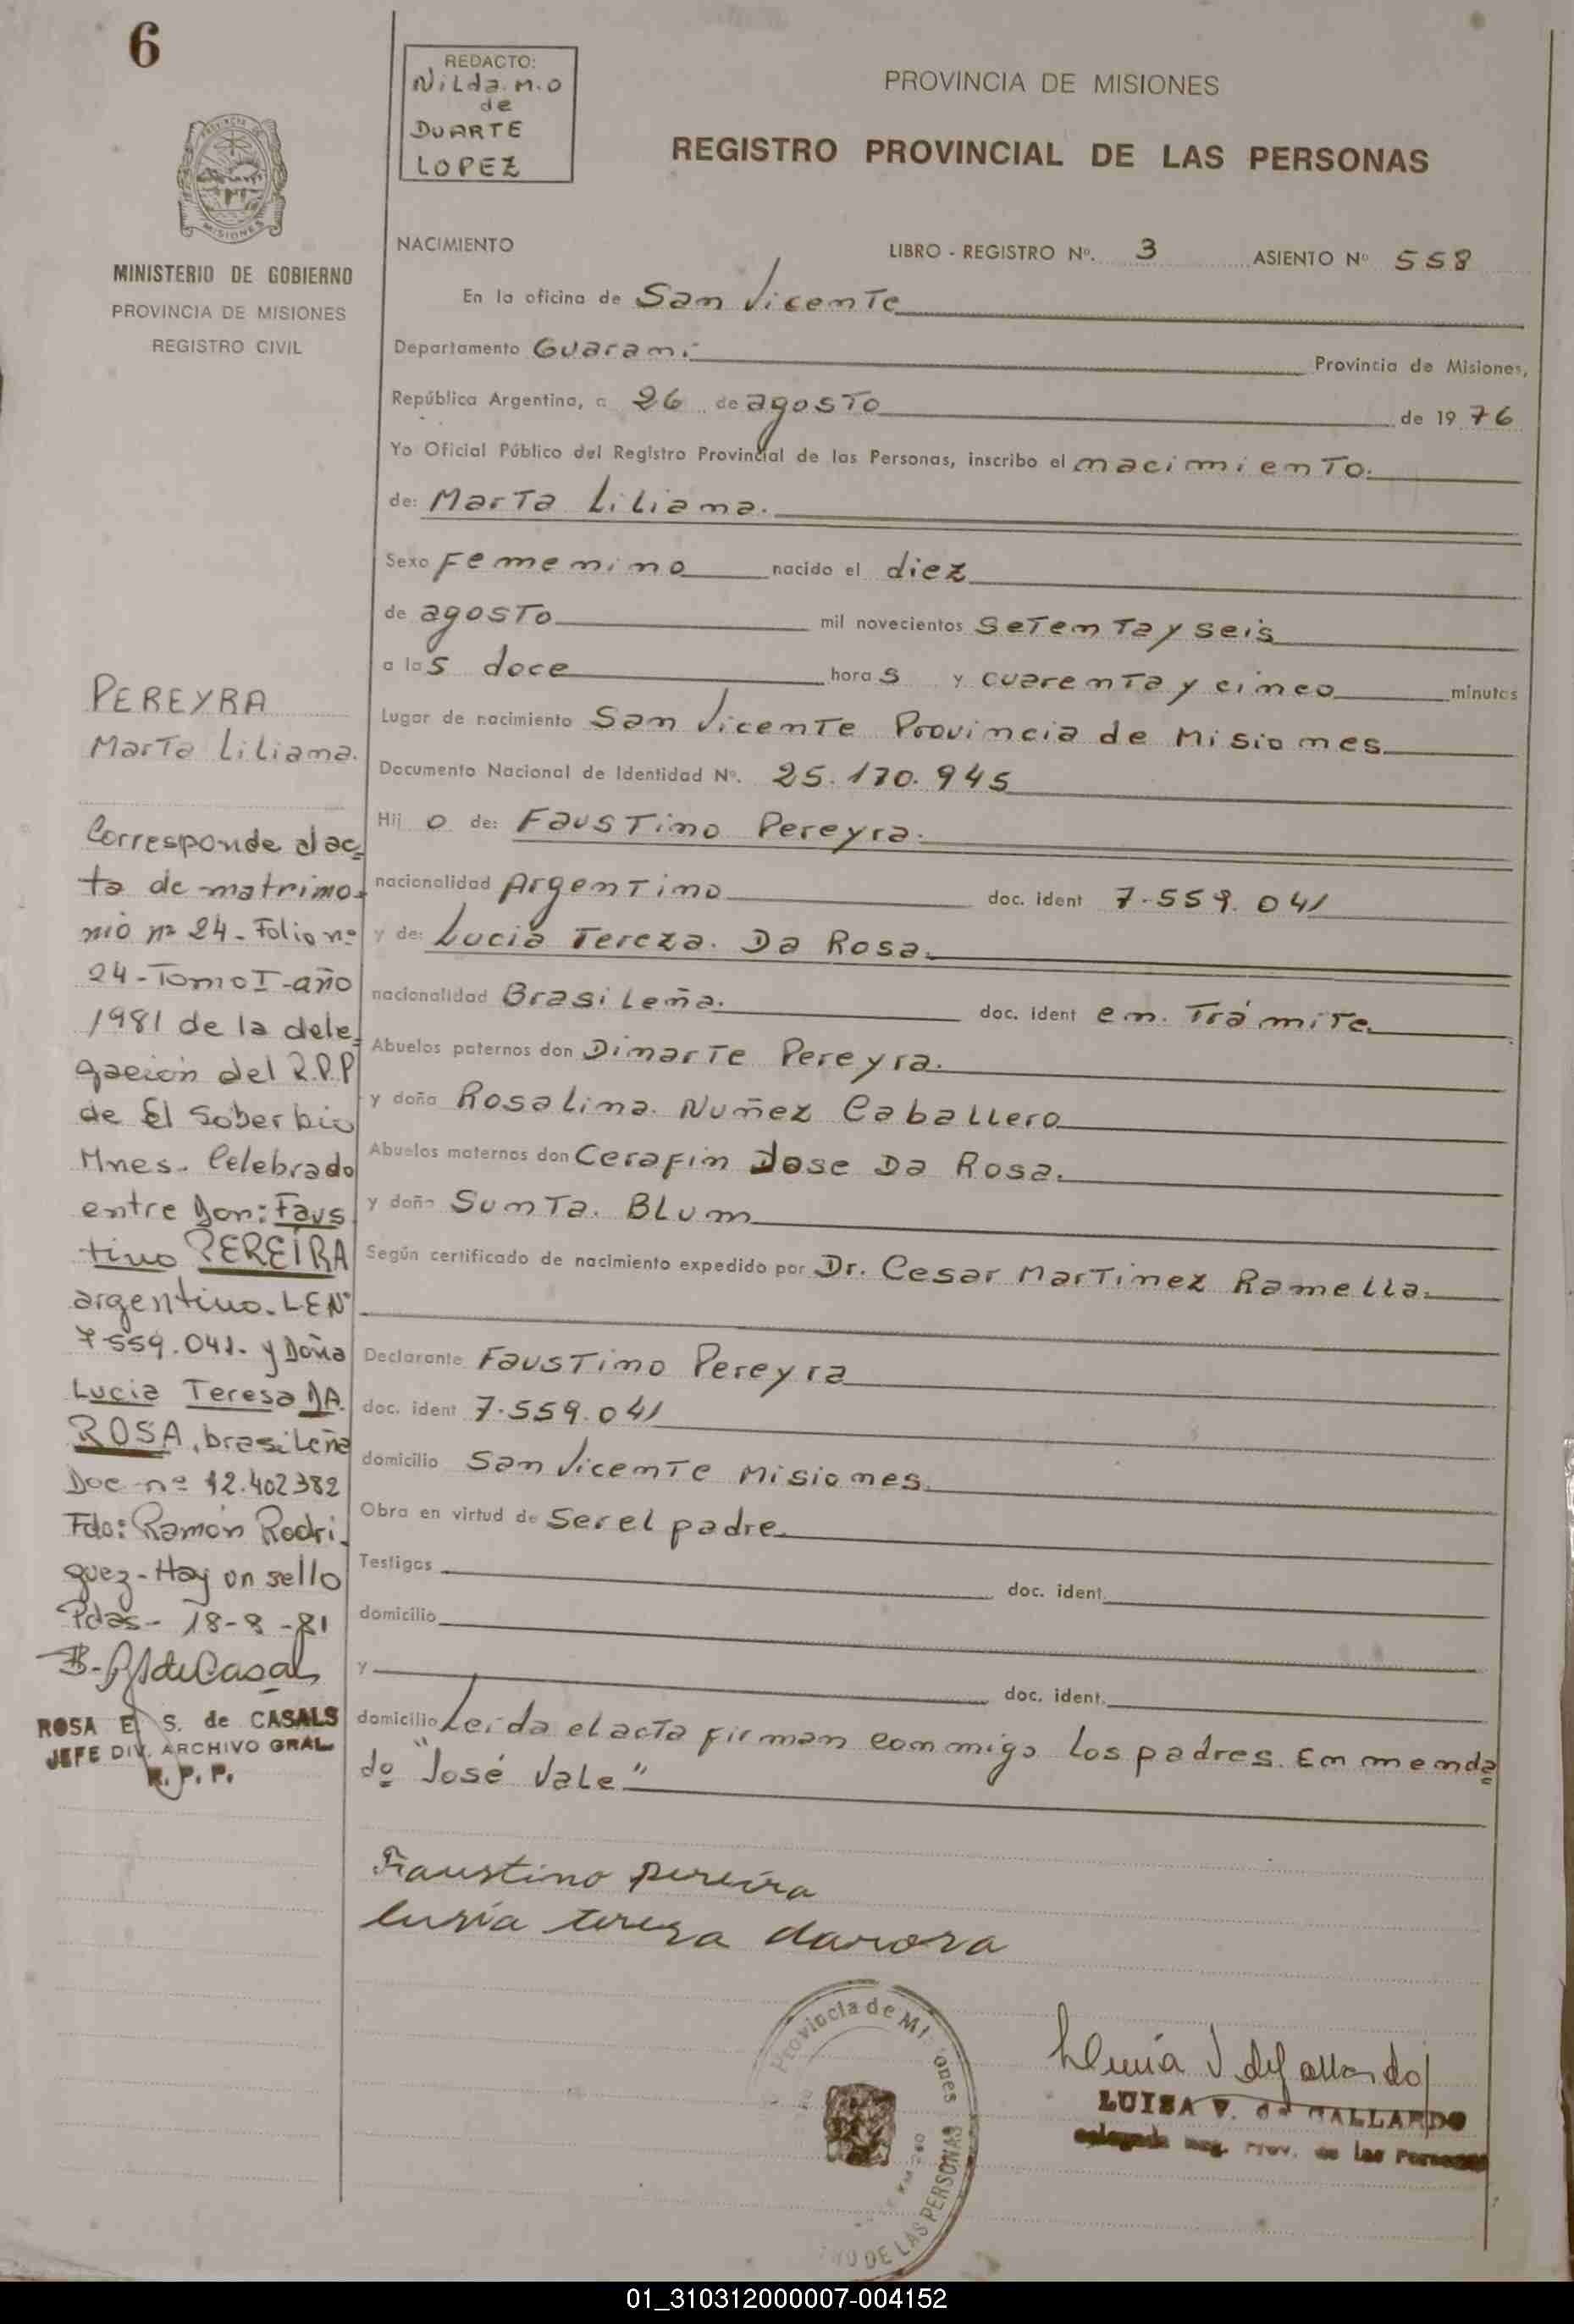 6
REDACTO:
Nilda.M.O
de
DUARTE
LOPEZ
PROVINCIA DE MISIONES
REGISTRO PROVINCIAL DE LAS PERSONAS
PROVINCIA DE
MISIONES
MINISTERIO DE GOBIERNO
PROVINCIA DE MISIONES
REGISTRO CIVIL
NACIMIENTO LIBRO - REGISTRO Nº. 3 ASIENTO Nº 558
En la oficina de San Vicente
Departamento Guarani Provincia de Misiones,
República Argentina, a 26 de agosto de 1976
Yo Oficial Público del Registro Provincial de las Personas, inscribo el nacimiento.
de: Marta Liliana.
Sexo Femenino nacido el diez
de agosto mil novecientos setenta y seis
a las doce horas y cuarenta y cinco minutos
Lugar de nacimiento San Vicente Provincia de Misiones
Documento Nacional de Identidad Nº. 25.170.945
Hijo de: Faustino Pereyra.
nacionalidad Argentino doc. ident 7.559.041
y de: Lucia Tereza. Da Rosa.
nacionalidad Brasileña. doc. ident en. Trámite
Abuelos paternos don Dinarte Pereyra.
y doña Rosalina. Nuñez Caballero
Abuelos maternos don Cerafin Jose Da Rosa.
y doña Sunta. Blum
Según certificado de nacimiento expedido por Dr. Cesar Martinez Ramella.
Declarante Faustino Pereyra
doc. ident 7.559.041
domicilio San Vicente Misiones.
Obra en virtud de ser el padre
Testigos doc. ident.
domicilio
y doc. ident.
domicilio Leida el acta firman conmigo los padres. Enmenda
do "José Vale"
Faustino pereira
lusia teresa darosa
PEREYRA
Marta Liliana.
Corresponde al ac
ta de matrimo
nio nº 24 - Folio nº
24 - Tomo I - año
1981 de la dele
gación del R.P.P
de El Soberbio
Mnes. Celebrado
entre Don: Faus
tino PEREIRA
argentino. L.E Nº
7.559.041. y Doña
Lucia Teresa DA
ROSA, brasileña
Doc nº 12.402382
Fdo: Ramón Rodri
guez - Hay un sello
Pdas - 18-8-81
ROSA E. S. de CASALS
JEFE DIV. ARCHIVO GRAL
R. P. P.
Provincia de Misiones
DE LAS PERSONAS
LUISA V. de GALLARDO
Delegada Reg. Prov. de las Personas
01_310312000007-004152